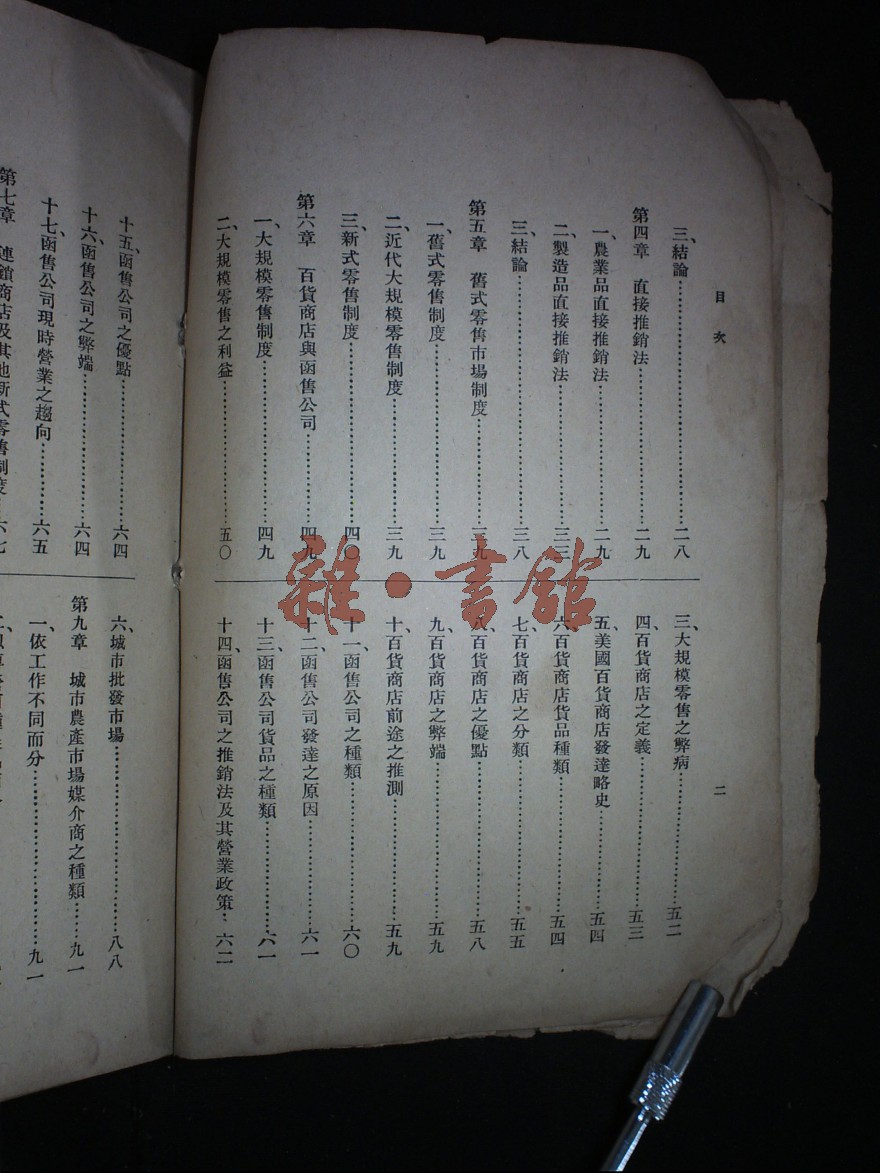 目次
二
三、結論……二八
第四章　直接推銷法……二九
一、農業品直接推銷法……二九
二、製造品直接推銷法……三三
三、結論……三八
第五章　舊式零售市場制度……三九
一、舊式零售制度……三九
二、近代大規模零售制度……三九
三、新式零售制度……四〇
第六章　百貨商店與函售公司……四九
一、大規模零售制度……四九
二、大規模零售之利益……五〇
三、大規模零售之弊病……五二
四、百貨商店之定義……五三
五、美國百貨商店發達略史……五四
六、百貨商店貨品種類……五四
七、百貨商店之分類……五五
八、百貨商店之優點……五八
九、百貨商店之弊端……五九
十、百貨商店前途之推測……五九
十一、函售公司之種類……六〇
十二、函售公司發達之原因……六一
十三、函售公司貨品之種類……六一
十四、函售公司之推銷法及其營業政策……六二
十五、函售公司之優點……六四
十六、函售公司之弊端……六四
十七、函售公司現時營業之趨向……六五
第七章　連鎖商店及其他新式零售制度……六七
六、城市批發市場……八八
第九章　城市農產市場媒介商之種類……九一
一、依工作不同而分……九一
雜·書館